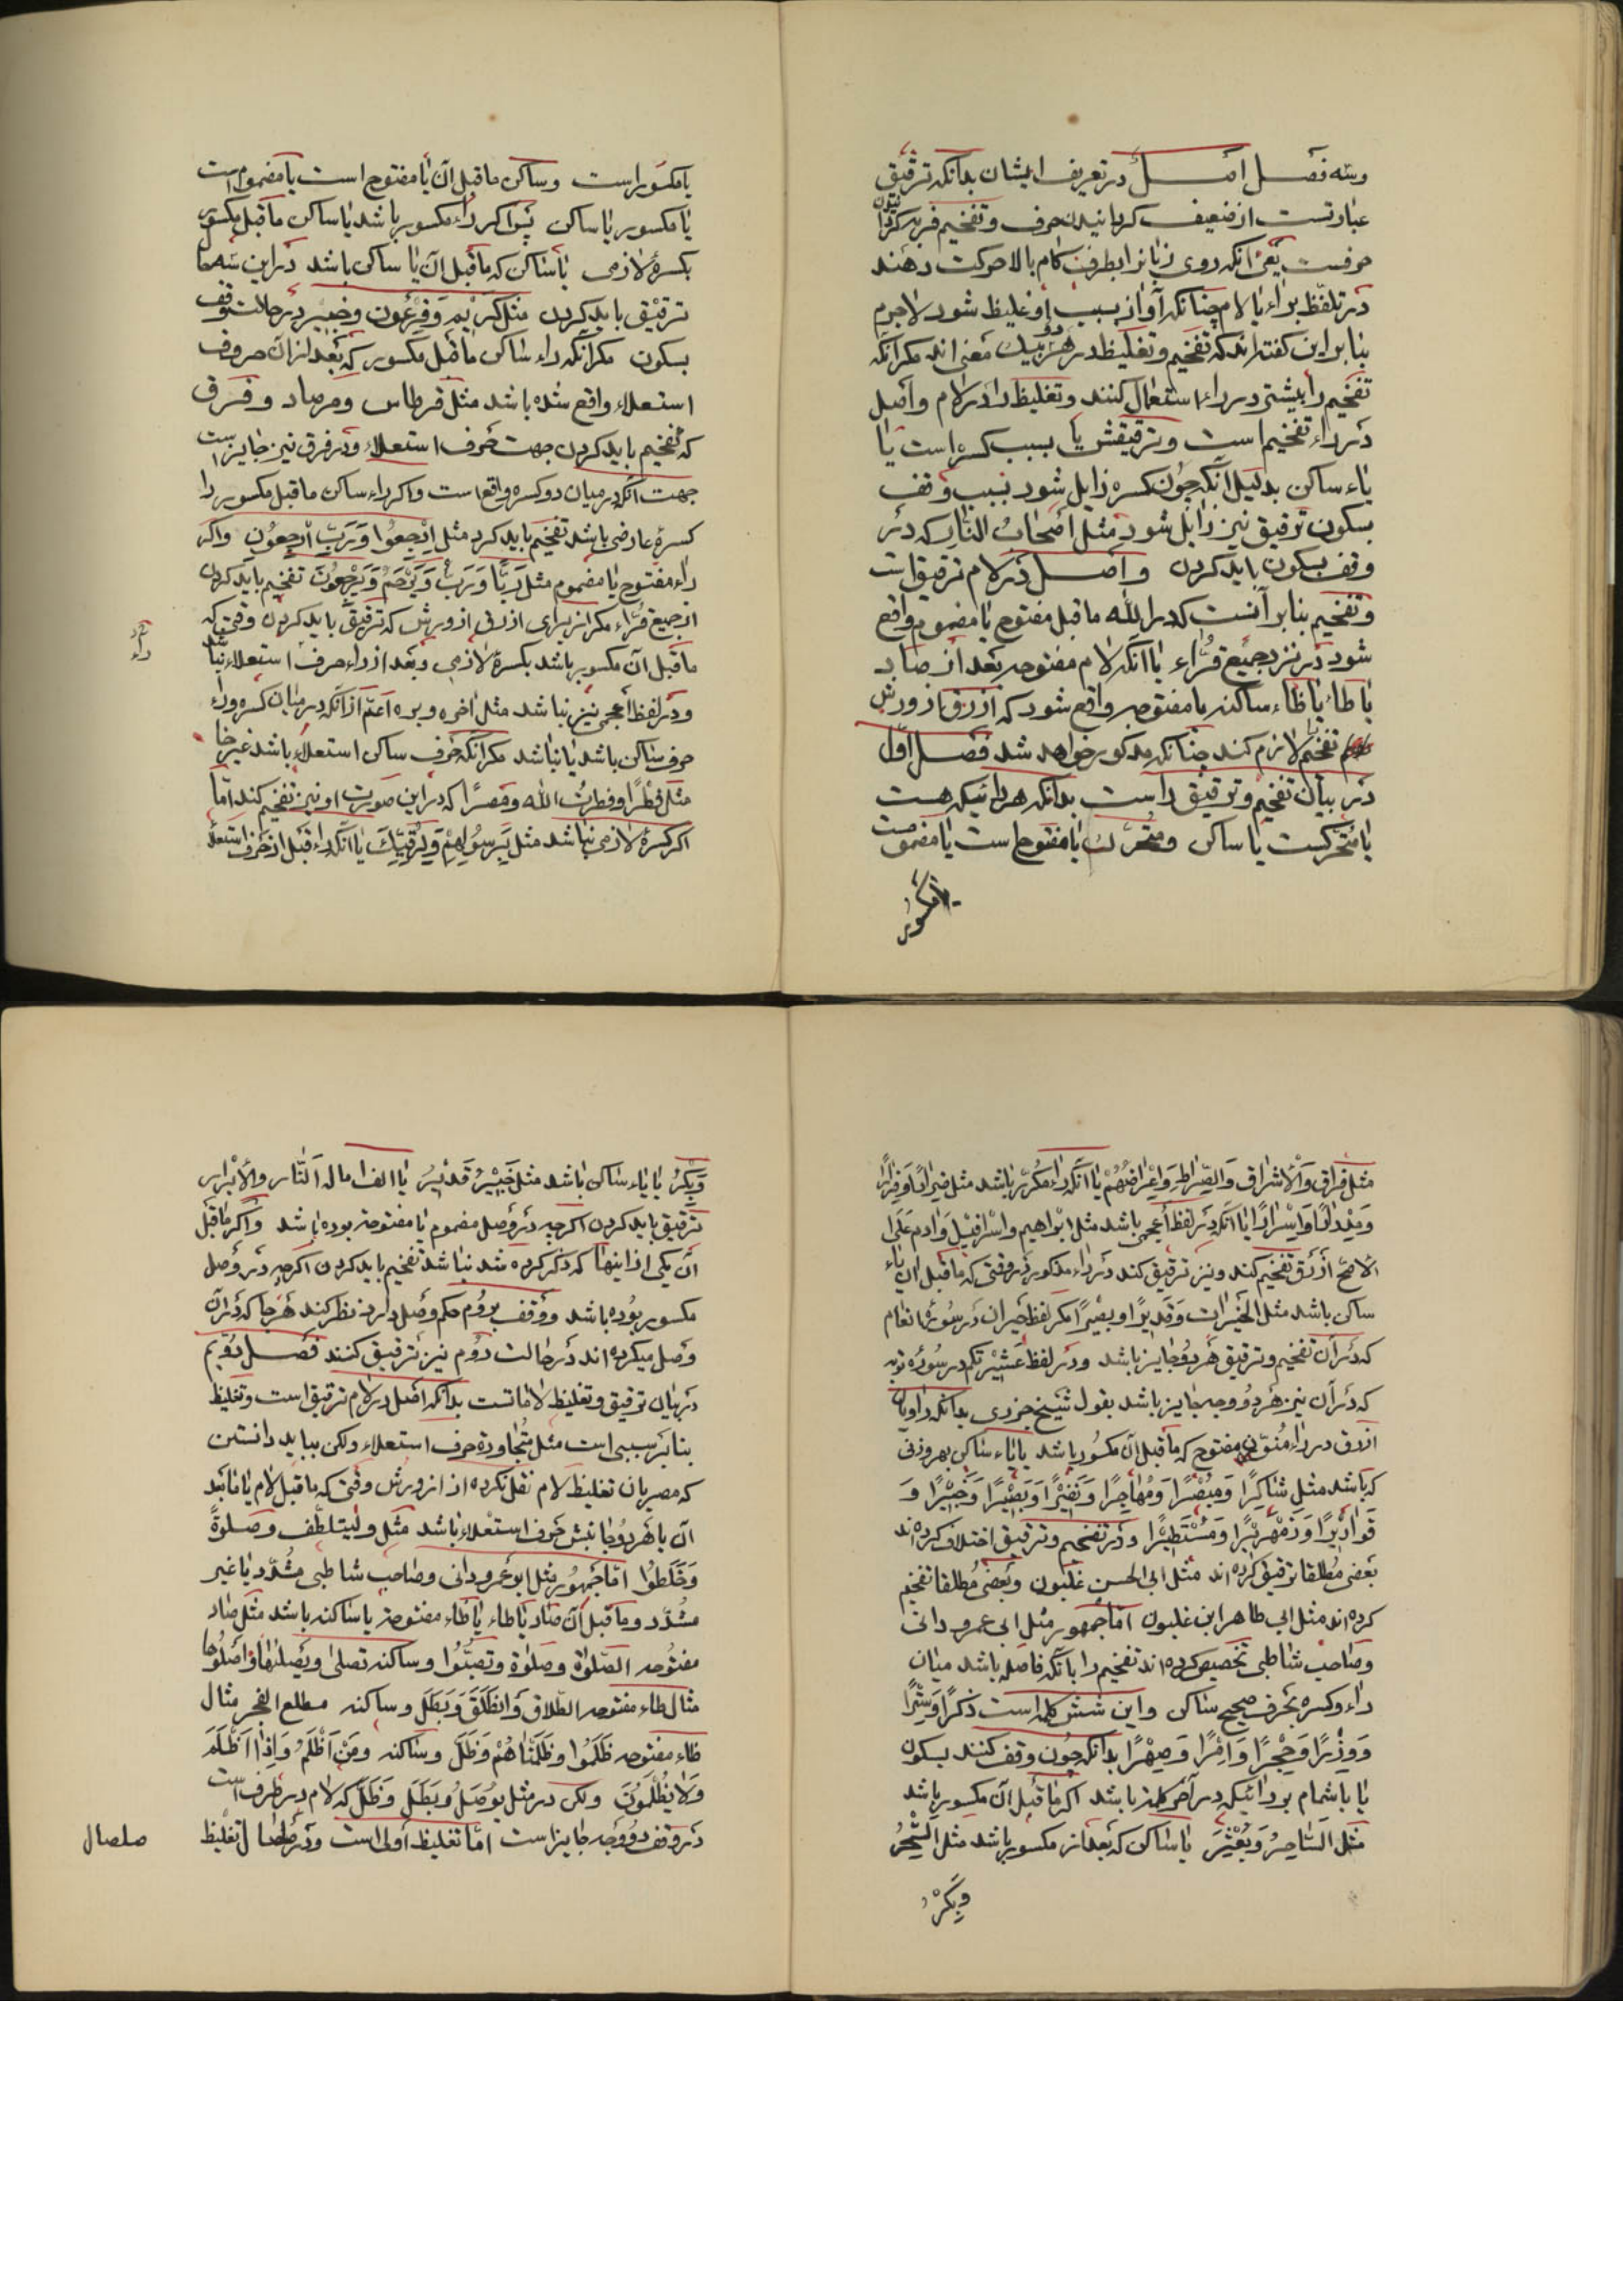 وسه فصل اصل در تعریف ایشان بدانکه ترقیق
عبارتست از ضعیف کردانیدن حرف و تفخیم فربه کردانیدن
حرفست یعنی انکه روی زبانرا بطرف کام بالا حرکت دهند
در تلفظ براء یا لام چنانکه آواز بسبب او غلیظ شود لاجرم
بنابراین کفته‌اند که تفخیم و تغلیظ در هر دو بیک معنی اند مکر انکه
تفخیم را بیشتر در راء استعمال کنند و تغلیظ را در لام و اصل
در راء تفخیم است و ترقیقش یا بسبب کسره است یا
یاء ساکن بدلیل انکه چون کسره زایل شود بسبب وقف
بسکون ترقیق نیز زایل شود مثل اصحاب النار که در
وقف بسکون باید کردن و اصل در لام ترقیق است
و تفخیم بنابر آنست که در الله ماقبل مفتوح یا مضموم واقع
شود در نزد جمیع قراء یا انکه لام مفتوحه بعد از صاد
یا طاء یا ظاء ساکنه یا مفتوحه واقع شود که ازرق از ورش
تفخیم لازم کند چنانکه مذکور خواهد شد فصل اول
در بیان تفخیم و ترقیق راست بدانکه هر رائیکه هست
یا متحرکست یا ساکن و متحرک یا مفتوح است یا مضمومست
یا مکسور
یا مکسور است و ساکن ماقبل آن یا مفتوح است یا مضموم است
یا مکسور یا ساکن پس اکر راء مکسور باشد یا ساکن ماقبل مکسور
بکسرهٔ لازمی یا ساکن که ماقبل آن یا ساکن باشد در این سه جا
ترقیق باید کردن مثل کَرِیْمٍ وَفِرْعَوْن و خبیر در حالت وقف
بسکون مکر انکه راء ساکن ماقبل مکسور که بعد از آن حروف
استعلاء واقع شده باشد مثل قرطاس و مرصاد و فرق
که تفخیم باید کردن جهت حرف استعلاء و در فرق نیز جایز است
جهت انکه در میان دو کسره واقع است و اکر راء ساکن ماقبل مکسور را
کسرهٔ عارضی باشد تفخیم باید کرد مثل اِرْجِعُوا وَرَبِّ ارْجِعُونِ و اکر
راء مفتوح یا مضموم مثل رَبَّنَا وَرَبُّ وَیَرْحَمُ وَیُرْجَعُونَ تفخیم باید کردن
از جمیع قراء مکر از برای ازرق از ورش که ترقیق باید کردن وقتی که
ماقبل آن مکسور باشد بکسرهٔ لازمی و بعد از راء حرف استعلاء نباشد
و در لفظ اعجمی نیز نباشد مثل اخره و بره اعم از آنکه در میان کسره و راء
حرف ساکن باشد یا نباشد مکر انکه حرف ساکن استعلاء باشد غیر خا
مثل قِطْرًا و فطرت الله و مصرًا که در این صورت او نیز تفخیم کند اما
اکر کسرهٔ لازمی نباشد مثل بِرَسُولِهِمْ وَلِرُقِیِّكَ یا انکه راء قبل از حرف استعلا
مثل فراق وَالْاِشْرَاق وَالصِّرَاط وَاِعْرَاضُهُمْ یا انکه راء مکرر باشد مثل ضِرَارًا وَفِرَارًا
وَمِدْرَارًا وَاِسْرَارًا یا انکه در لفظ اعجمی باشد مثل ابراهیم و اسرافیل و ارم علی
الاصح ازرق تفخیم کند و نیز ترقیق کند در راء مذکور در وقتی که ماقبل ان یاء
ساکن باشد مثل الخیرات وَقَدِیرًا و بصیرًا مکر لفظ حیران در سورهٔ انعام
که در ان تفخیم و ترقیق هر دو جایز باشد و در لفظ عَشِیْرَتُکُم در سورهٔ توبه
که در آن نیز هر دو وجه جایز باشد بقول شیخ جزری بدانکه راویان
ازرق در راء منون مفتوح که ماقبل آن مکسور باشد یا یاء ساکن بهر وزنی
که باشد مثل شَاکِرًا وَمُبْصِرًا وَمُهَاجِرًا وَنَفِیْرًا وَبَصِیْرًا وَخَبِیْرًا وَ
قَوَارِیْرًا وَزَمْهَرِیْرًا وَمُسْتَطِیْرًا در تفخیم و ترقیق اختلاف کرده‌اند
بعضی مطلقا ترقیق کرده‌اند مثل ابی الحسن غلبون و بعضی مطلقا تفخیم
کرده‌اند مثل ابی طاهر ابن غلبون اما جمهور مثل ابی عمرو دانی
و صاحب شاطبی تخصیص کرده‌اند تفخیم را بانکه فاصله باشد میان
راء و کسره بحرف صحیح ساکن و این شش کلمه است ذِکْرًا وَسِتْرًا
وَوِزْرًا وَحِجْرًا وَاِمْرًا وَصِهْرًا بدانکه چون وقف کنند بسکون
یا باشمام بر رائیکه در آخر کلمه باشد اکر ماقبل آن مکسور باشد
مثل السَّاحِرُ وَبُعْثِرَ یا ساکن که بعد از مکسور باشد مثل السِّحْرُ
وَبِکْرٌ
وَبِکْرٌ یا یاء ساکن باشد مثل خَبِیْرٌ قَدِیْرٌ یا الف اماله النَّار والابرار
ترقیق باید کردن اکرچه در وصل مضموم یا مفتوحه بوده باشد و اکر ماقبل
آن یکی از اینها که ذکر کرده شد نباشد تفخیم باید کردن اکرچه در وصل
مکسور بوده باشد و وقف بروم حکم وصل دارد نظر کنند هرجا که در آن
وصل میکرده‌اند در حالت روم نیز ترقیق کنند فصل دویم
در بیان ترقیق و تغلیظ لاماتست بدانکه اصل در لام ترقیق است و تغلیظ
بنابر سببی است مثل متجاورة حرف استعلاء ولکن بباید دانستن
که مصریان تغلیظ لام نقل کرده‌اند از ورش وقتی که ماقبل لام یا مابعد
آن یا هر دو جانبش حرف استعلاء باشد مثل ولیتلطف و صلوة
وَخَلَطُوا اما جمهور مثل ابو عمرو دانی و صاحب شاطبی مشدد یا غیر
مشدد و ماقبل آن صاد یا طاء یا ظاء مفتوحه یا ساکنه باشد مثل صاد
مفتوحه الصلوة و صلوة و تصلّوا و ساکنه تصلی و یصلیها و اصلوها
مثال طاء مفتوحه الطلاق وَانْطَلَقَ وَبَطَلَ و ساکنه مطلع الفجر مثال
ظاء مفتوحه ظَلَمُوا وظَلَمْنَاهُمْ وَظَلَّ و ساکنه وَمَنْ اَظْلَمُ وَاِذَا اَظْلَمَ
وَلَا یُظْلَمُونَ ولکن در مثل یُوصَلُ وَبَطَلَ وَظَلَّ که لام در طرف است
در وقف دو وجه جایز است اما تغلیظ اولی است و در صلصال تغلیظ
صلصال